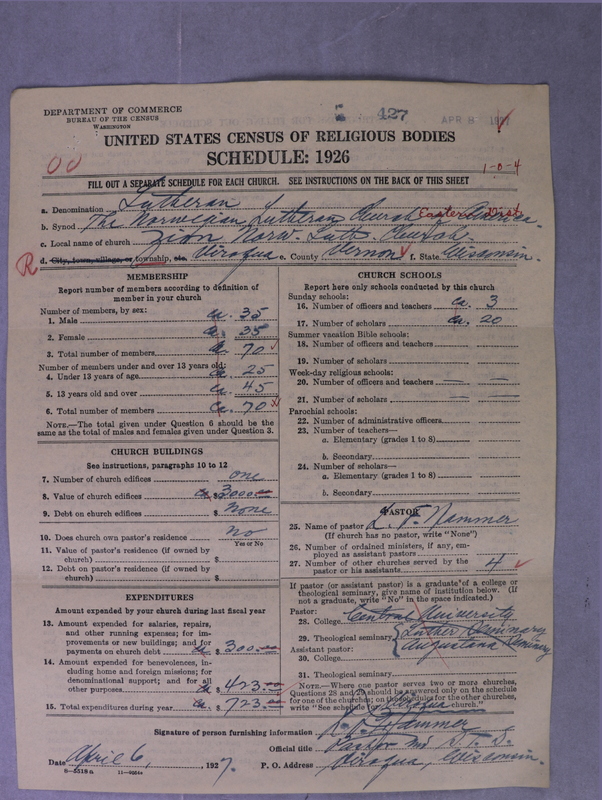 DEPARTMENT OF COMMERCE
BUREAU OF THE CENSUS
WASHINGTON
427 APR 8 1927
UNITED STATES CENSUS OF RELIGIOUS BODIES
SCHEDULE: 1926
00
1-0-4
FILL OUT A SEPARATE SCHEDULE FOR EACH CHURCH. SEE INSTRUCTIONS ON THE BACK OF THIS SHEET
a. Denomination Lutheran
b. Synod The Norwegian Lutheran Church of America. Eastern Dist
c. Local name of church Zion Norw. Luth. Church.
R d. City, town, village, or township, etc. Viroqua e. County Vernon f. State Wisconsin.
MEMBERSHIP
Report number of members according to definition of member in your church
Number of members, by sex:
1. Male ca. 35
2. Female ca. 35
3. Total number of members ca. 70
Number of members under and over 13 years old:
4. Under 13 years of age ca. 25
5. 13 years old and over ca. 45
6. Total number of members ca. 70
NOTE.—The total given under Question 6 should be the same as the total of males and females given under Question 3.
CHURCH BUILDINGS
See instructions, paragraphs 10 to 12
7. Number of church edifices one
8. Value of church edifices ca. $3000.00
9. Debt on church edifices $ none
10. Does church own pastor's residence? no
Yes or No
11. Value of pastor's residence (if owned by church) $
12. Debt on pastor's residence (if owned by church) $
EXPENDITURES
Amount expended by your church during last fiscal year
13. Amount expended for salaries, repairs, and other running expenses; for improvements or new buildings; and for payments on church debt ca $ 300.00
14. Amount expended for benevolences, including home and foreign missions; for denominational support; and for all other purposes ca $ 423.00
15. Total expenditures during year ca $ 723.00
CHURCH SCHOOLS
Report here only schools conducted by this church
Sunday schools:
16. Number of officers and teachers ca. 3
17. Number of scholars ca. 20
Summer vacation Bible schools:
18. Number of officers and teachers
19. Number of scholars
Week-day religious schools:
20. Number of officers and teachers
21. Number of scholars
Parochial schools:
22. Number of administrative officers
23. Number of teachers—
a. Elementary (grades 1 to 8)
b. Secondary
24. Number of scholars—
a. Elementary (grades 1 to 8)
b. Secondary
PASTOR
25. Name of pastor Hammer
(If church has no pastor, write "None")
26. Number of ordained ministers, if any, employed as assistant pastors
27. Number of other churches served by the pastor or his assistants 4
If pastor (or assistant pastor) is a graduate of a college or theological seminary, give name of institution below. (If not a graduate, write "No" in the space indicated.)
Pastor:
28. College Central University
29. Theological seminary Luther Seminary
Augustana Seminary
Assistant pastor:
30. College
31. Theological seminary
NOTE.—Where one pastor serves two or more churches, Questions 28 and 29 should be answered only on the schedule for one of the churches; on the schedules for the other churches, write "See schedule for Viroqua church."
Signature of person furnishing information Hammer
Official title Pastor
Date April 6, 1927. P. O. Address Viroqua, Wisconsin.
8-5518a 11-9054a